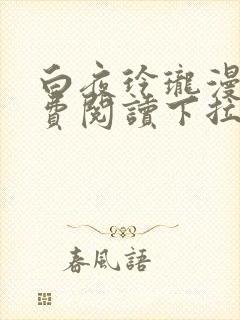 白夜玲瓏漫
費閱讀下拉
春風語